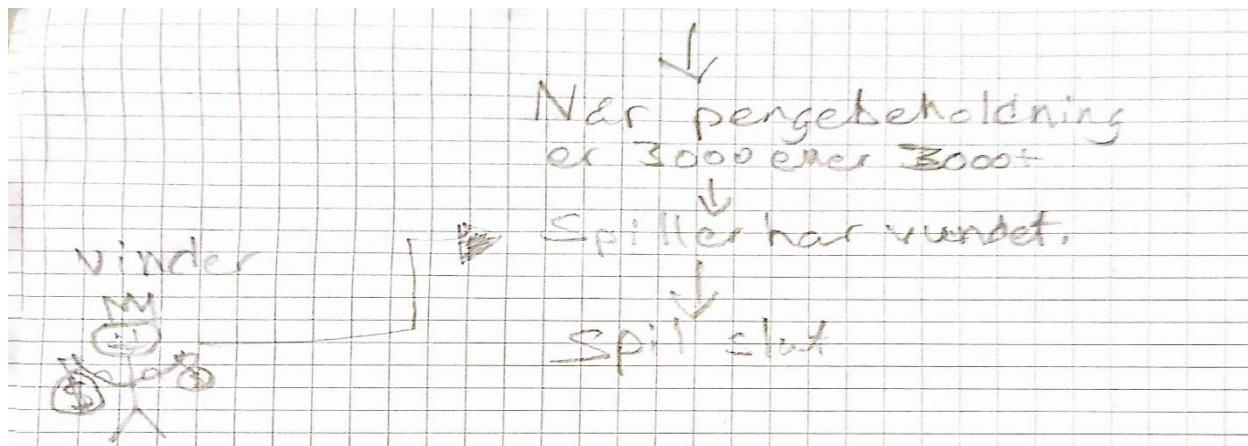 Når pengebeholdning
er 3000 eller 3000+
Spiller har vundet.
vinder
Spil slut
$
$